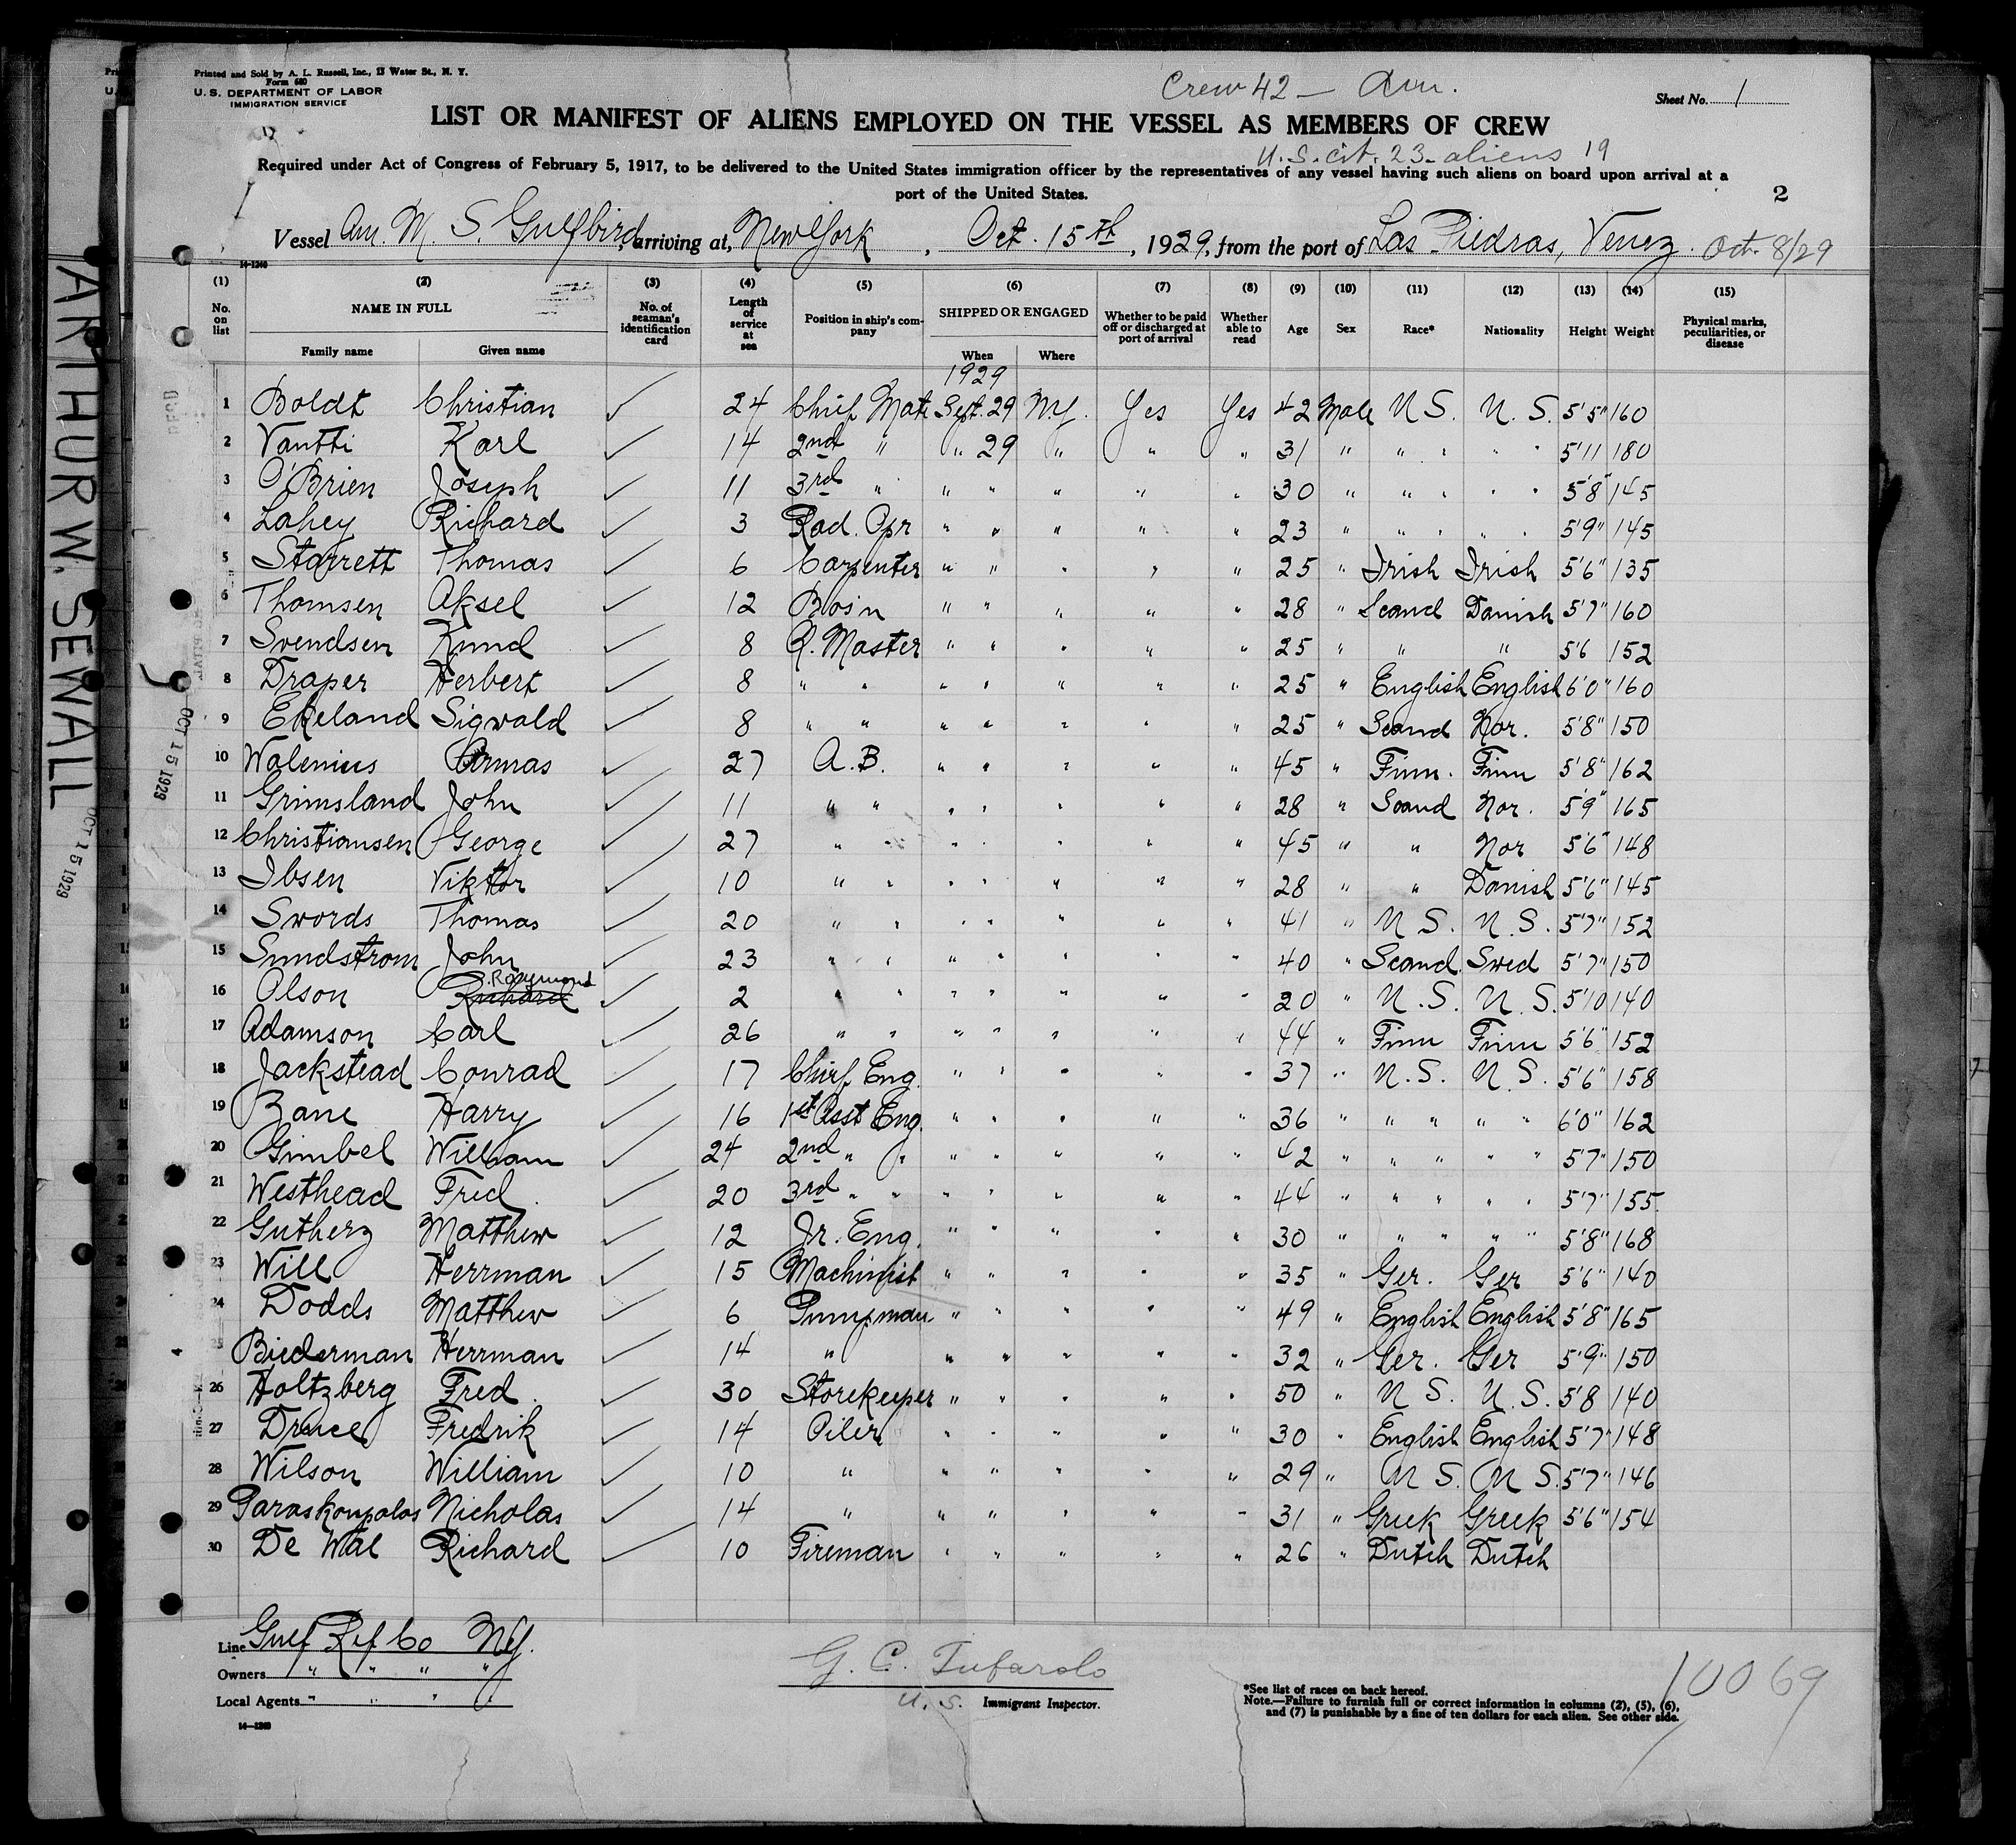 Printed and Sold by A. L. Russell, Inc., 13 Water St., N. Y.
Form 680
U. S. DEPARTMENT OF LABOR
IMMIGRATION SERVICE
Crew 42 — Am.
Sheet No. 1
LIST OR MANIFEST OF ALIENS EMPLOYED ON THE VESSEL AS MEMBERS OF CREW
U.S. cit. 23 - aliens 19
Required under Act of Congress of February 5, 1917, to be delivered to the United States immigration officer by the representatives of any vessel having such aliens on board upon arrival at a
port of the United States.
2
Vessel Am. M. S. Gulfbird, arriving at, New York, Oct. 15th, 1929, from the port of Las Piedras, Venez. Oct. 8/29
14-1240
(1) (2) (3) (4) (5) (6) (7) (8) (9) (10) (11) (12) (13) (14) (15)
No. on list NAME IN FULL Family name Given name No. of seaman's identification card Length of service at sea Position in ship's company SHIPPED OR ENGAGED When Where Whether to be paid off or discharged at port of arrival Whether able to read Age Sex Race* Nationality Height Weight Physical marks, peculiarities, or disease
1929
1 Boldt Christian ✓ 24 Chief Mate Sept. 29 NY. Yes Yes 42 Male U S. U. S. 5'5" 160
2 Vantti Karl ✓ 14 2nd " " 29 " " " 31 " " " " " 5'11 180
3 O'Brien Joseph ✓ 11 3rd " " " " " " 30 " " " " " 5'8" 145
4 Lahey Richard ✓ 3 Rad. Opr " " " " " 23 " " " " " 5'9" 145
5 Starrett Thomas ✓ 6 Carpenter " " " " " 25 " Irish Irish 5'6" 135
6 Thomsen Aksel ✓ 12 Bos'n " " " " " 28 " Scand Danish 5'7" 160
7 Svendsen Knud ✓ 8 Q. Master " " " " " 25 " " " 5'6 152
8 Draper Herbert ✓ 8 " " " " " " " 25 " English English 6'0" 160
9 Ekeland Sigwald ✓ 8 " " " " " " " 25 " Scand Nor. 5'8" 150
10 Walenius Armas ✓ 27 A. B. " " " " " 45 " Finn. Finn 5'8" 162
11 Grimsland John ✓ 11 " " " " " " " 28 " Scand Nor. 5'9" 165
12 Christiansen George ✓ 27 " " " " " " " 45 " " Nor 5'6" 148
13 Ibsen Viktor ✓ 10 " " " " " " " 28 " " Danish 5'6" 145
14 Swords Thomas ✓ 20 " " " " " " " 41 " U S. U. S. 5'7" 152
15 Sundstrom John ✓ 23 " " " " " " " 40 " Scand. Swed 5'7" 150
16 Olson Raymond Richard ✓ 2 " " " " " " " 20 " U. S. U. S. 5'10 140
17 Adamson Carl ✓ 26 " " " " " " " 44 " Finn Finn 5'6" 152
18 Jackstead Conrad ✓ 17 Chief Eng. " " " " " 37 " U. S. U. S. 5'6" 158
19 Zane Harry ✓ 16 1st Asst Eng. " " " " " 36 " " " " " 6'0" 162
20 Gimbel William ✓ 24 2nd " " " " " " " 42 " " " " " 5'7" 150
21 Westhead Fred. ✓ 20 3rd " " " " " " " 44 " " " " " 5'7" 155
22 Gutherz Matthew ✓ 12 Jr. Eng. " " " " " 30 " " " " " 5'8" 168
23 Will Herrman ✓ 15 Machinist " " " " " 35 " Ger. Ger 5'6" 140
24 Dodds Matthew ✓ 6 Pumpman " " " " " 49 " English English 5'8" 165
25 Biederman Herrman ✓ 14 " " " " " " 32 " Ger. Ger 5'9" 150
26 Holtzberg Fred. ✓ 30 Storekeeper " " " " " 50 " U S. U. S. 5'8 140
27 Druce Fredrik ✓ 14 Oiler " " " " " 30 " English English 5'7" 148
28 Wilson William ✓ 10 " " " " " " 29 " U S. U S. 5'7" 146
29 Paraskoupolos Nicholas ✓ 14 " " " " " " 31 " Greek Greek 5'6" 154
30 De Wal Richard ✓ 10 Fireman " " " " " 26 " Dutch Dutch
Line Gulf Ref Co NY.
Owners " " " "
Local Agents " " " "
14—1240
G. C. Tufarolo
U. S. Immigrant Inspector.
*See list of races on back hereof.
Note.—Failure to furnish full or correct information in columns (2), (5), (6),
and (7) is punishable by a fine of ten dollars for each alien. See other side.
10069
ARTHUR W. SEWALL
OCT 15 1929
OCT 15 1929